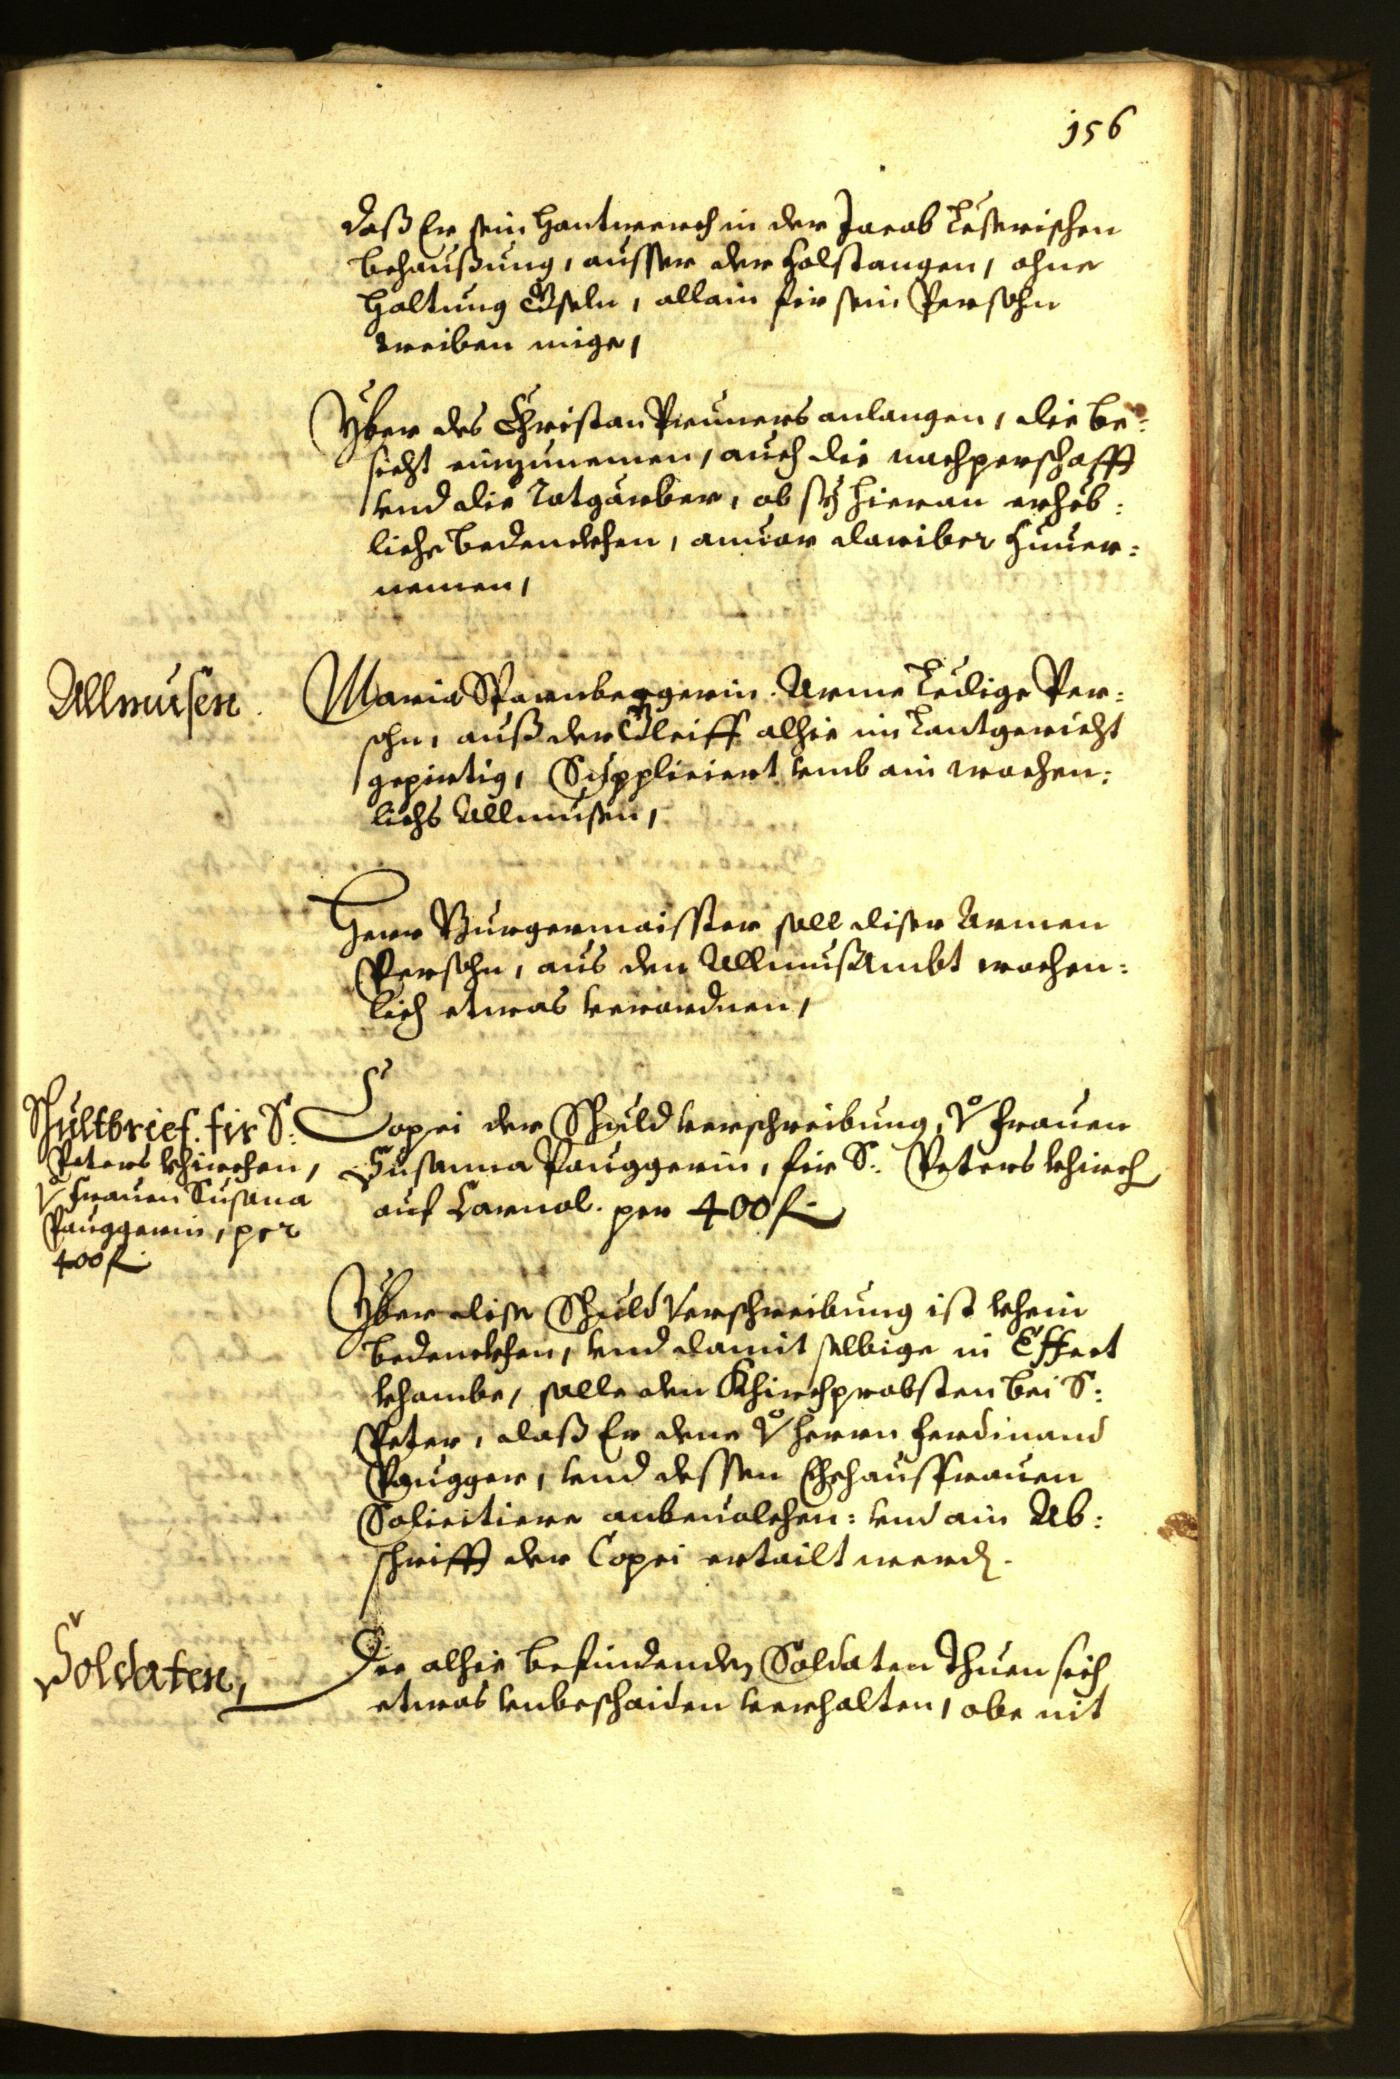 156
daß Er sein Hantwerch in der Jacob Leserischen
behaußung, ausser der Holstangen, ohne
Haltung Eseln, allain fir sein Persohn
treiben mige,
Yber des Christan Prunners anlangen, die be-
sicht einzunemen, auch die nachperschafft
vnd die Rotgärber, ob sÿ hieran erheb-
liche bedenckhen, anuor dariber zuuer-
nemen,
Allmusen.
Maria Spannbergerin Arme Ledige Per-
sohn, auß der Gleiff alhie im Lantgericht
gepirtig, Suppliciert vmb ain wochen-
lichs Allmusen,
Herr Burgermaisster soll diser Armen
Persohn, aus den Allmußambt wochen-
lich etwas verordnen,
Schultbrief. fir S:
Peters khirchen,
V Frauen Susana
Pauggerin, per
400 f
Copei der Schuld verschreibung, V Frauen
Susanna Pauggerin, fir S: Peters khirch
auf Carnol. per 400 f
Yber dise Schuld Verschreibung ist khein
bedenckhen, vnd damit selbige in Effect
khombe, solle den Khirchprobsten bei S:
Peter, daß Er dene V Herrn Ferdinand
Paugger, vnd dessen Ehehausfrauen
Solicitiere anbeuolchen: vnd ain Ab-
schrifft der Copei ertailt werd.
Soldaten,
Die alhie befindenden Soldaten Thuen sich
etwas vnbeschaiden verhalten, obe nit